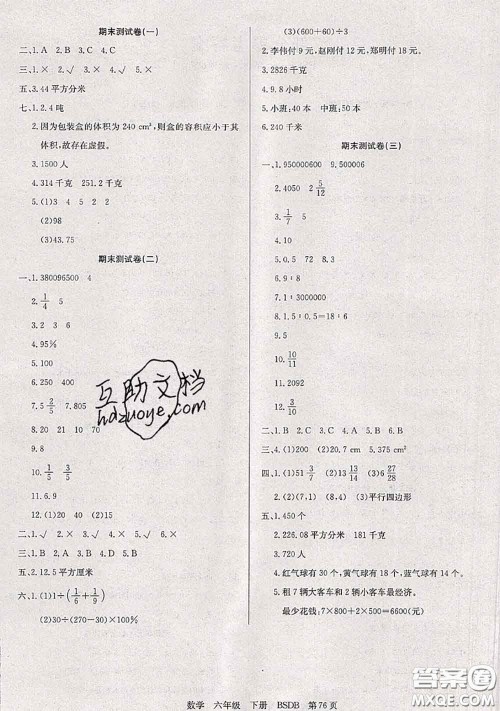 期末测试卷(一)
二、1. A 2. B 3. C 4. A
三、1. × 2. × 3. √ 4. √
五、3.44 平方分米
七、1. 2.4 吨
2. 因为包装盒的体积为 240 cm³，则盒的容积应小于其
体积，故存在虚假。
3. 1500 人
4. 314 千克 251.2 千克
5. (1)3 5 2 2
(2)98
(3)43.75
期末测试卷(二)
一、1. 380096500 4
2. 1/4 5
3. 20 3 6
4. 95%
5. 6 9 5
6. 250 400
7. 5 2/5 7.805
8. 20 21 10 70
9. 8
10. 1/5 3/5
11. 6.9
12. (1)20 40 (2)15
二、1. √ 2. × 3. √ 4. × 5. ×
三、1. A 2. B 3. B 4. C 5. B
五、2. 12.5 平方厘米
六、1. (1)1÷(1/6+1/9)
(2)30÷(270-30)×100%
(3)(600+60)÷3
2. 李伟付 9 元，赵刚付 12 元，郑明付 18 元。
3. 2826 千克
4. 9.8 小时
5. 小班:40 本 中班:50 本
6. 240 千米
期末测试卷(三)
一、1. 950000600 9.500006
2. 4050 2 5/12
3. 1/7 5
4. 9.8
5. 30
6. 24
7. 9∶3000000
8. 1.5∶1=0.5∶1/3
9. 16
10. 10/11
11. 2092
12. 3/8
二、1. B 2. C 3. C 4. A 5. C
三、1. √ 2. × 3. × 4. × 5. √
四、1. (1)51 3/7 (2)13 (3)6 27/28
2. (1)(7,9) (3)平行四边形
五、1. (2)20.7 cm 20.5 cm²
2. 226.08 平方分米 181 千克
3. 720 人
4. 红气球有 30 个，黄气球有 18 个，蓝气球有 14 个。
5. 租 7 辆大客车和 2 辆小客车最经济。
最少花钱：7×800+2×500=6600(元)
互助文档
hdzuoye.com
数学 六年级 下册 BSDB 第 76 页
作业答案